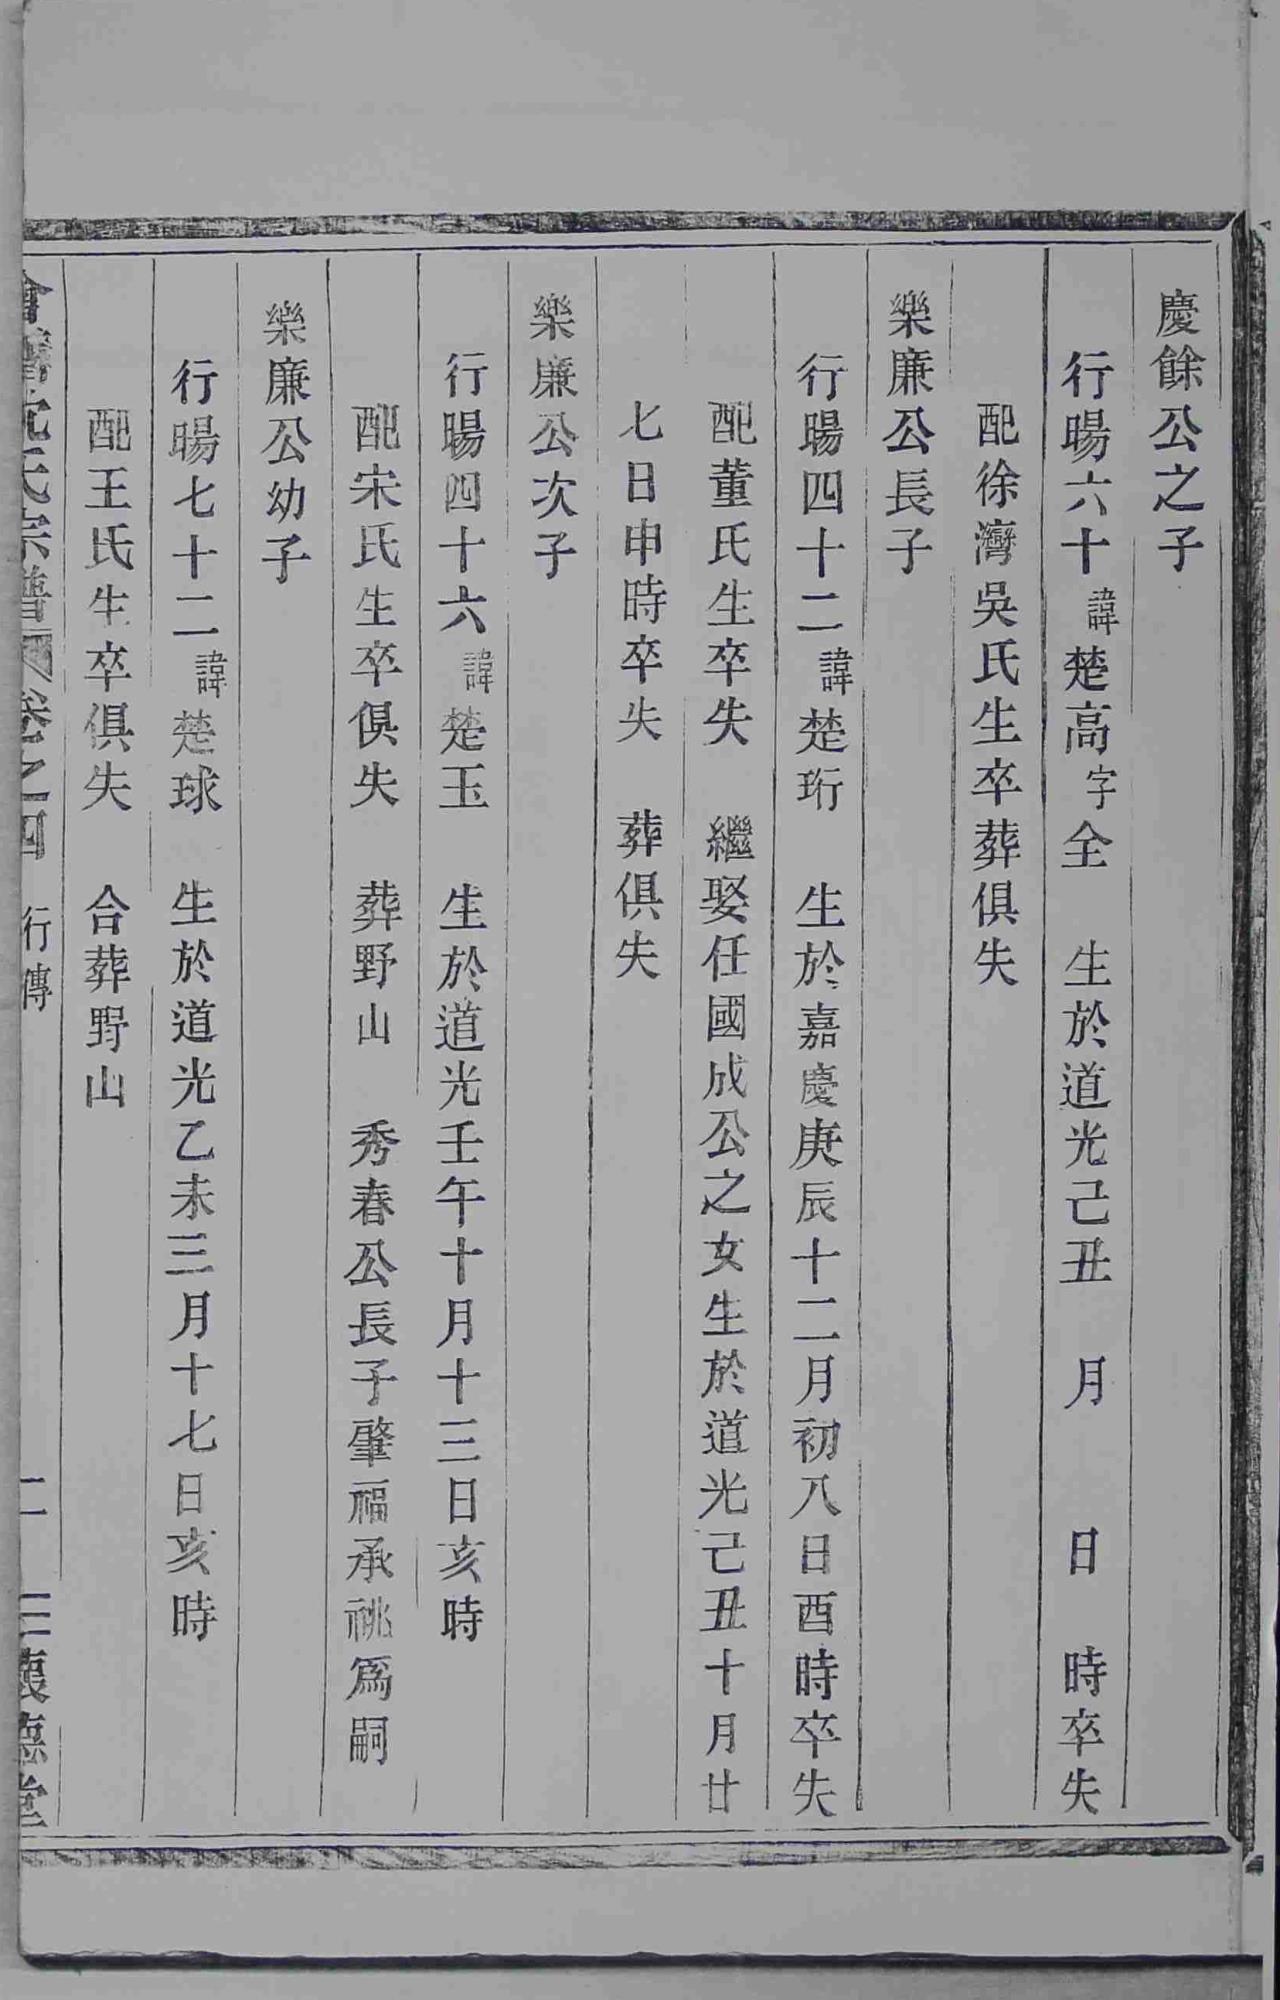 慶餘公之子
行暘六十諱楚高字全　生於道光己丑　月　日　時卒失
配徐灣吳氏生卒葬俱失
樂廉公長子
行暘四十二諱楚珩　生於嘉慶庚辰十二月初八日酉時卒失
配董氏生卒失　繼娶任國成公之女生於道光己丑十月廿
七日申時卒失　葬俱失
樂廉公次子
行暘四十六諱楚玉　生於道光壬午十月十三日亥時
配宋氏生卒俱失　葬野山　秀春公長子肇福承祧爲嗣
樂廉公幼子
行暘七十二諱楚球　生於道光乙未三月十七日亥時
配王氏生卒俱失　合葬野山
會稽　氏宗譜　卷之四　行傳　二　三　懷德堂